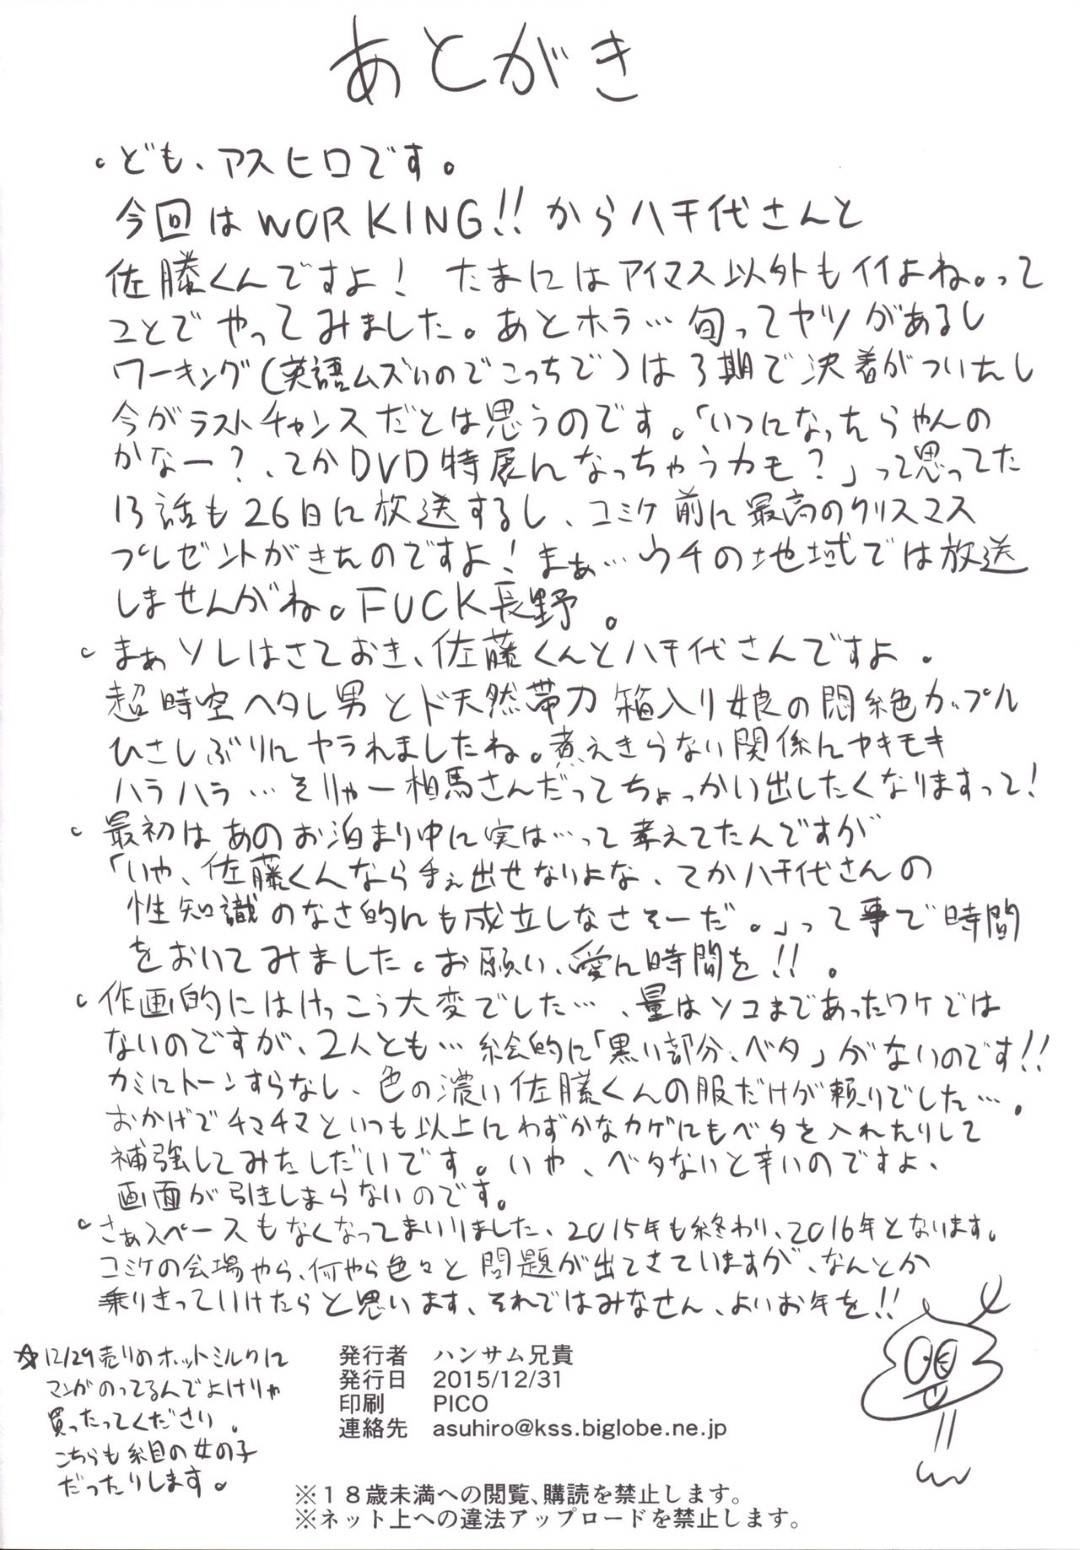 あとがき
・ども、アスヒロです。
今回はWORKING!!から八千代さんと
佐藤くんですよ! たまにはアイマス以外もイイよね。って
ことでやってみました。あとホラ…旬ってヤツがあるし
ワーキング(英語ムズいのでこっちで)は3期で決着がついたし
今がラストチャンスだとは思うのです。「いつになったらやんの
かなー?、てかDVD特典になっちゃうカモ?」って思ってた
13話も26日に放送するし、コミケ前に最高のクリスマス
プレゼントがきたのですよ!まぁ…ウチの地域では放送
しませんがね。FUCK長野。
・まぁソレはさておき、佐藤くんと八千代さんですよ。
超時空ヘタレ男とド天然帯刀箱入り娘の悶絶カップル
ひさしぶりにヤラれましたね。煮えきらない関係にヤキモキ
ハラハラ…そりゃー相馬さんだってちょっかい出したくなりますって!
・最初はあのお泊まり中に実は…って考えてたんですが
「いや、佐藤くんなら手ぇ出せないよな、てか八千代さんの
性知識のなさ的にも成立しなさそーだ。」って事で時間
をおいてみました。お願い、愛に時間を!!。
・作画的にはけっこう大変でした…、量はソコまであったワケでは
ないのですが、2人とも…絵的に「黒い部分、ベタ」がないのです!!
カミにトーンすらなし、色の濃い佐藤くんの服だけが頼りでした…。
おかげでチマチマといつも以上にわずかなカゲにもベタを入れたりして
補強してみたしだいです。いや、ベタないと辛いのですよ、
画面が引きしまらないのです。
・さぁスペースもなくなってまいりました、2015年も終わり、2016年となります。
コミケの会場やら、何やら色々と問題が出てきていますが、なんとか
乗りきっていけたらと思います、それではみなせん、よいお年を!!
☆12/29売りのホットミルクに
マンガのってるんでよけりゃ
買ったってください。
こちらも糸目の女の子
だったりします。
発行者 ハンサム兄貴
発行日 2015/12/31
印刷 PICO
連絡先 asuhiro@kss.biglobe.ne.jp
※18歳未満への閲覧、購読を禁止します。
※ネット上への違法アップロードを禁止します。